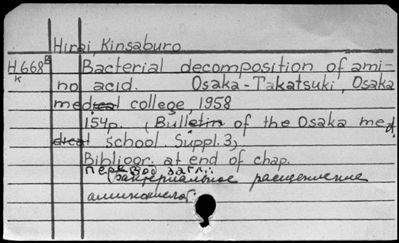 Hirai, Kinsaburo
H668 B Bacterial decomposition of ami-
к no acid. Osaka-Takatsuki, Osaka
medical college, 1958
154p. (Bulletin of the Osaka med.
school. Suppl. 3)
Bibliogr. at end of chap.
перевод загл.:
(Бактериальное расщепление
аминокислот